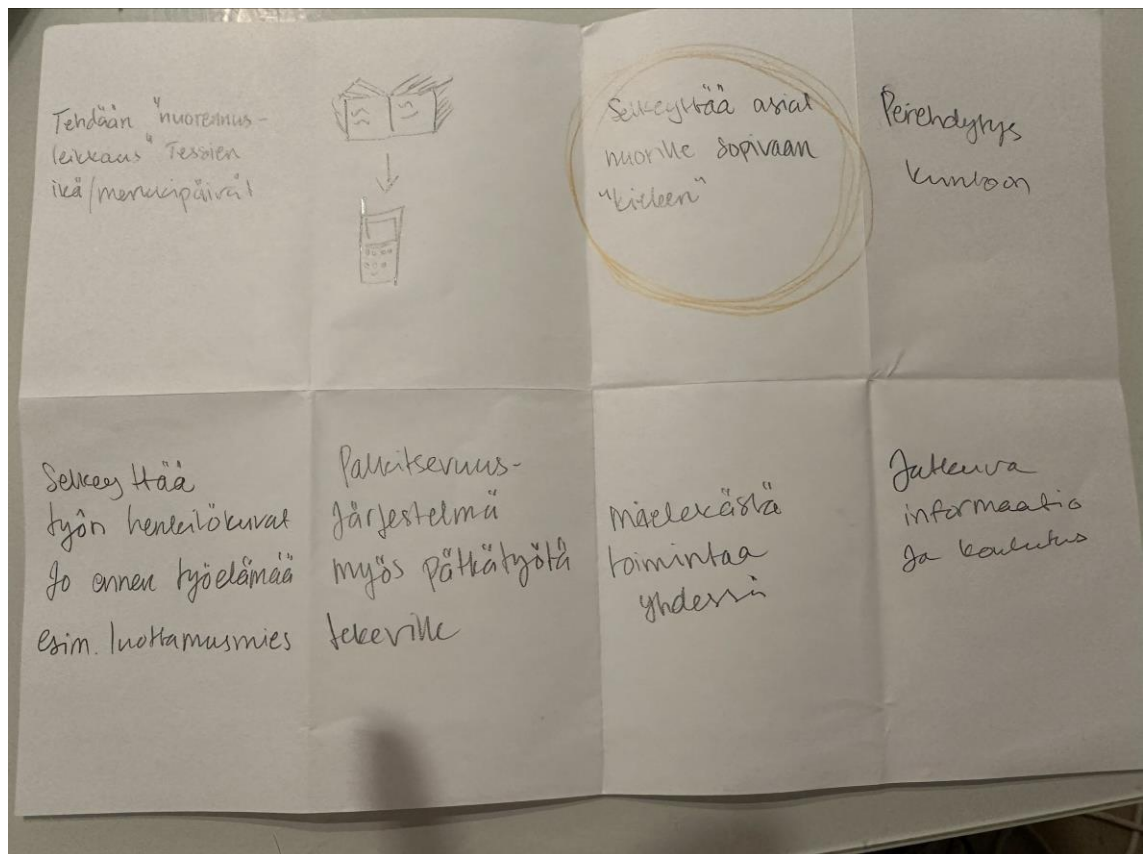 Tehdään "nuorennus-
leikkaus" Tessien
ikä/merkkipäivät
Selkeyttää asiat
nuorille sopivaan
"kieleen"
Perehdytys
kuntoon
Selkeyttää
työn henkilökuvat
Jo ennen työelämää
esim. luottamusmies
Palkitsevuus-
Järjestelmä
myös pätkätyötä
tekeville
Mielekästä
toimintaa
yhdessä
Jatkuva
informaatio
Ja koulutus